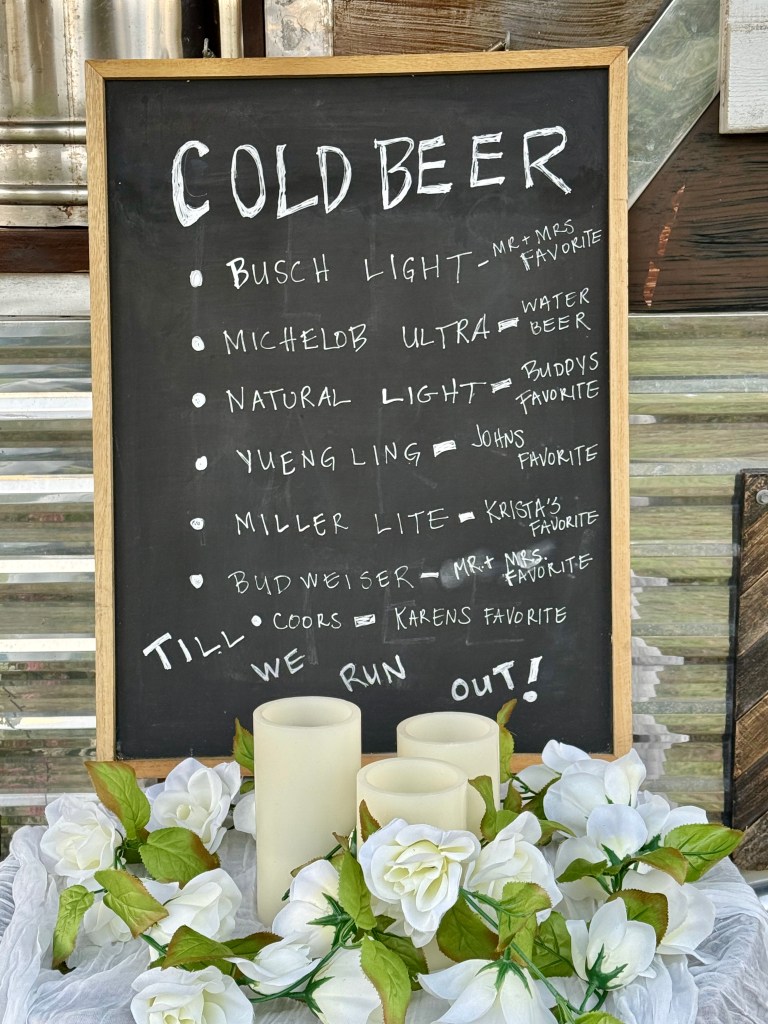 COLD BEER
• BUSCH LIGHT - MR + MRS FAVORITE
• MICHELOB ULTRA - WATER BEER
• NATURAL LIGHT - BUDDYS FAVORITE
• YUENGLING - JOHNS FAVORITE
• MILLER LITE - KRISTA'S FAVORITE
• BUDWEISER - MR. + MRS. FAVORITE
• COORS - KARENS FAVORITE
TILL WE RUN OUT!